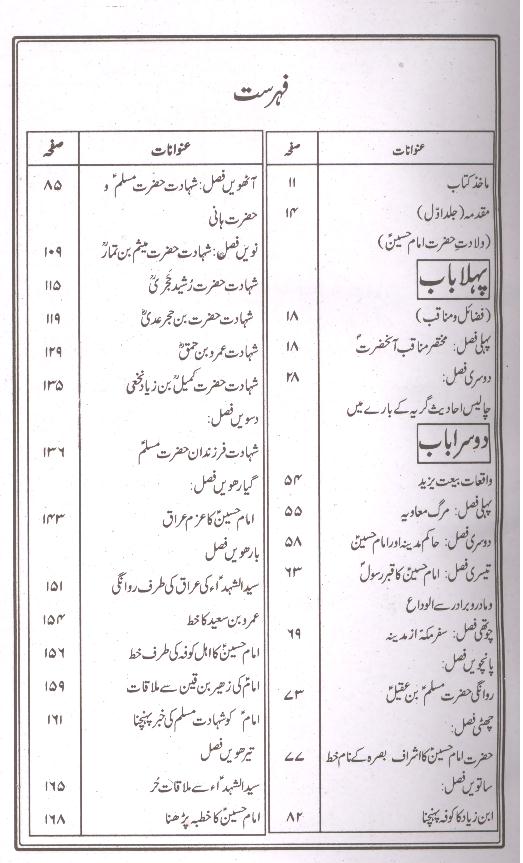 فہرست
عنوانات صفحہ
ماخذ کتاب ۱۱
مقدمہ (جلد اوّل) ۱۴
(ولادتِ حضرت امام حسینؑ)
پہلا باب
(فضائل و مناقب) ۱۸
پہلی فصل: مختصر مناقب آنحضرتؑ ۱۸
دوسری فصل: ۲۸
چالیس احادیث گریہ کے بارے میں
دوسرا باب
واقعات بیعت یزید ۵۴
پہلی فصل: مرگ معاویہ ۵۵
دوسری فصل: حاکم مدینہ اور امام حسینؑ ۵۸
تیسری فصل: امام حسینؑ کا قبر رسولؐ ۶۳
و مادر و برادر سے الوداع
چوتھی فصل: سفر مکہ از مدینہ ۶۹
پانچویں فصل:
روانگی حضرت مسلمؑ بن عقیلؑ ۷۳
چھٹی فصل:
حضرت امام حسینؑ کا اشراف بصرہ کے نام خط ۷۷
ساتویں فصل:
ابن زیاد کا کوفہ پہنچنا ۸۲
عنوانات صفحہ
آٹھویں فصل: شہادت حضرت مسلمؑ و ۸۵
حضرت ہانی
نویں فصل: شہادت حضرت میثم بن تمارؒ ۱۰۹
شہادت حضرت رُشید ہَجَریؒ ۱۱۵
شہادت حضرت بن حجر عدیؒ ۱۱۹
شہادت عمرو بن حمقؒ ۱۲۹
شہادت حضرت کمیلؒ بن زیاد نخعی ۱۳۵
دسویں فصل:
شہادت فرزندان حضرت مسلمؑ ۱۳۶
گیارھویں فصل:
امام حسینؑ کا عزم عراق ۱۴۳
بارھویں فصل
سید الشہداؑء کی عراق کی طرف روانگی ۱۵۱
عمرو بن سعید کا خط ۱۵۴
امام حسینؑ کا اہل کوفہ کی طرف خط ۱۵۶
امامؑ کی زہیر بن قین سے ملاقات ۱۵۹
امامؑ کو شہادت مسلم کی خبر پہنچنا ۱۶۱
تیرھویں فصل
سید الشہداؑء سے ملاقات حُر ۱۶۵
امام حسینؑ کا خطبہ پڑھنا ۱۶۸